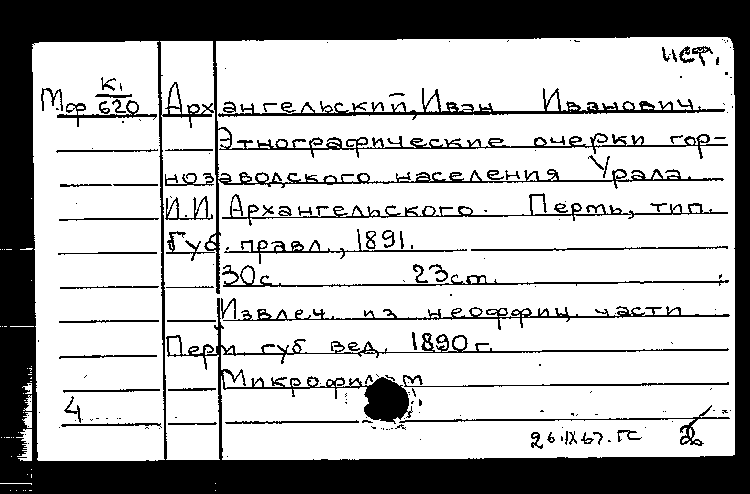 ист.
Мф К1/620 Архангельский, Иван Иванович.
Этнографические очерки гор-
нозаводского населения Урала.
И.И. Архангельского. Пермь, тип.
Губ. правл., 1891.
30с. 23ст.
Извлеч. из неоффиц. части
Перм. губ. вед. 1890 г.
Микрофильм
4
26.IX 67. ГС